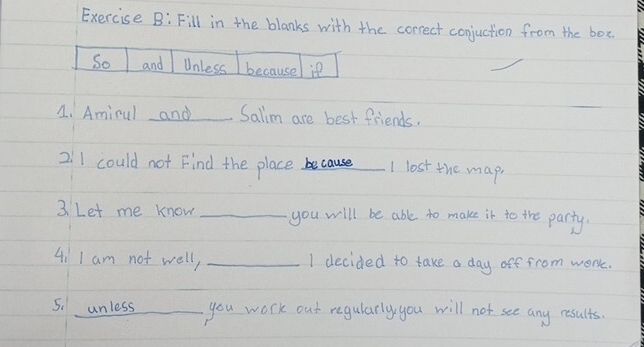 Exercise B: Fill in the blanks with the correct conjuction from the box.
So and Unless because if
1. Amirul and Salim are best friends.
2. I could not Find the place because I lost the map.
3. Let me know ________ you will be able to make it to the party.
4. I am not well, ________ I decided to take a day off from work.
5. unless you work out regularly, you will not see any results.